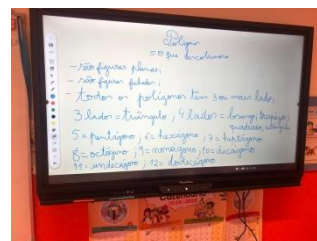 Polígono
= o que descobrimos
- são figuras planas,
- são figuras fechadas,
- todos os polígonos têm 3 ou mais lados,
3 lados = triângulo, 4 lados = losango, trapézio,
quadrado, retângulo
5 = pentágono, 6 = hexágono, 7 = heptágono
8 = octógono, 9 = nonágono, 10 = decágono
11 = undecágono, 12 = dodecágono